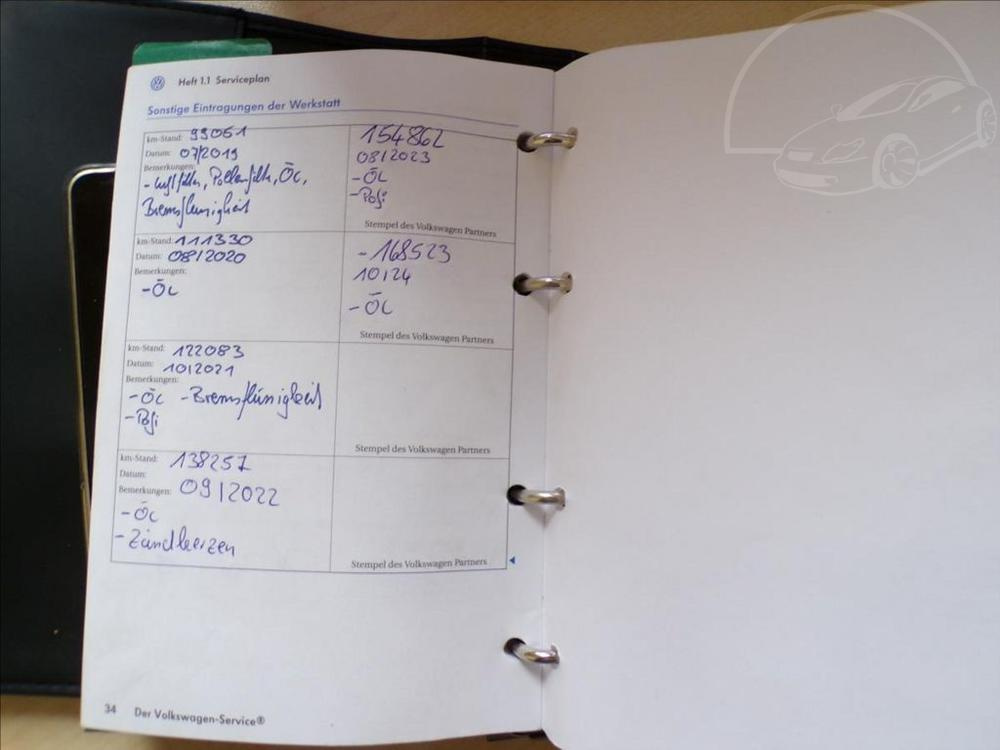 Heft 1.1 Serviceplan
Sonstige Eintragungen der Werkstatt
km-Stand: 99051
Datum: 07/2019
Bemerkungen:
- Luftfilter, Pollenfilter, ÖL,
Bremsflüssigkeit
km-Stand: 111330
Datum: 08/2020
Bemerkungen:
- ÖL
km-Stand: 122083
Datum: 10/2021
Bemerkungen:
- ÖL - Bremsflüssigkeit
- Pofi
km-Stand: 138257
Datum:
Bemerkungen: 09/2022
- ÖL
- Zündkerzen
154862
08/2023
- ÖL
- Pofi
Stempel des Volkswagen Partners
- 168523
10/24
- ÖL
Stempel des Volkswagen Partners
Stempel des Volkswagen Partners
Stempel des Volkswagen Partners
34 Der Volkswagen-Service®